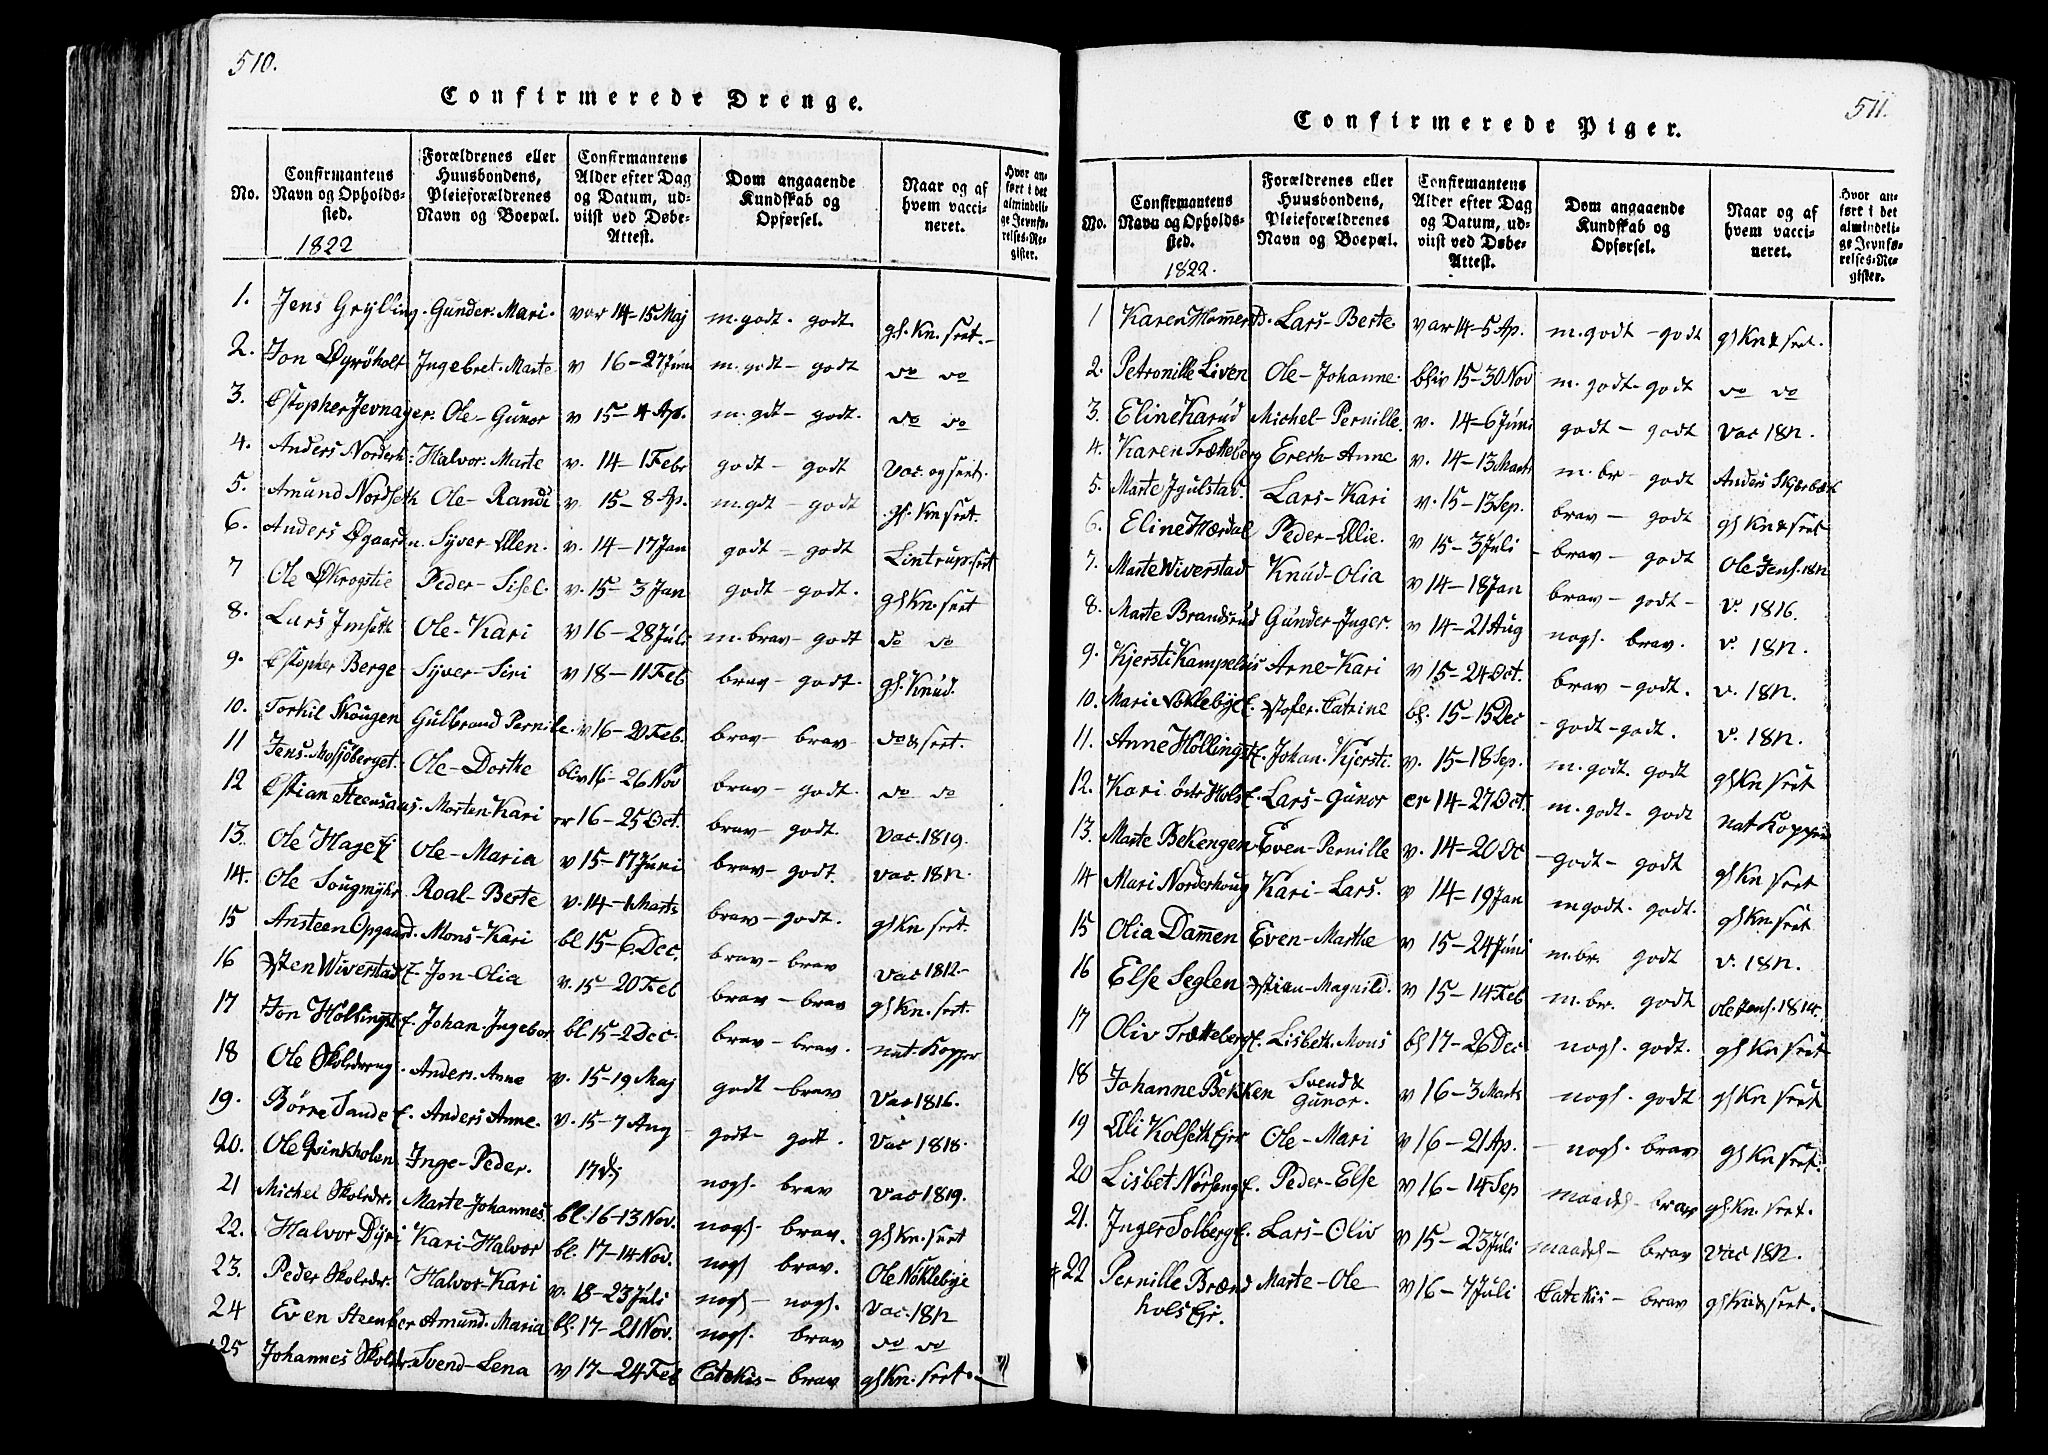 510.
Confirmerede Drenge.
No. Confirmantens Navn og Opholds-sted. Forældrenes eller Huusbondens, Pleieforældrenes Navn og Boepæl. Confirmantens Alder efter Dag og Datum, ud-viist ved Døbe-Attest. Dom angaaende Kundskab og Opførsel. Naar og af hvem vacci-neret. Hvor an-ført i det almindeli-ge Jevnfø-relses-Re-gister.
1822
1. Jens Grylling. Gunder. Mari. var 14-15 Maj m. godt. godt gs. Kn. sert.
2. Jon Øgröholt Ingebret. Marte v 16-27 Juni m. godt - godt do do
3. Cstopher Jevnager. Ole - Gunor v 15-4 Ap. m. gdt - godt. do do
4. Anders Norderh: Halvor. Marte v. 14-1 Febr godt - godt Vac. og sert.
5. Amund Nordseth Ole - Randi v 15-8 Ap. m. gdt - godt gs. Kn sert.
6. Anders Øgaard n. Syver - Ellen. v. 14-17 Jan godt - godt Lintrup. sert
7 Ole Økrogstie Peder - Sisel. v. 15-3 Jan godt - godt. gs Kn. sert
8. Lars Jmseth Ole - Kari v 16-28 Juli m. brav - godt do do
9. Cstopher Berge Syver - Siri v 18-11 Feb brav - godt. gs. Knud.
10. Torkil Skougen Gulbrand Pernile. v 16-20 Feb. brav - brav do & sert.
11 Jens. Mossjöberget. Ole - Dorthe bliv 16-26 Nov brav - godt. do do
12 Cstian Steensaas. Morten Kari er 16-25 Oct. brav - godt. Vac. 1819.
13. Ole Hage Ole - Maria v 15-17 Juni brav - godt. vac. 1812.
14. Ole Sougmyhr Roal - Berte v. 14-1 Marts brav - godt. gs Kn sert.
15 Ansteen Opgaard. Mons - Kari bl 15-6 Dec. brav - brav vac 1812-
16 Sten Wiverstad E. Jon - Olia v. 15-20 Feb brav - brav gs Kn. sert.
17 Jon Höllingst E. Johan - Ingebor bl. 15-2 Dec. brav - brav. nat. Kopper
18 Ole Skoldereng. Anders. Anne v. 15-19 Maj godt - brav Vac 1816.
19. Börre Sande E. Anders Anne. v. 15-7 Aug godt - godt. Vac 1818.
20. Ole Qvinkholen Inge - Peder. 17 nogs. brav Vac 1819.
21 Michel Skoledr. Marte - Johannes. bl. 16-13 Nov. nogs. brav. gs Kn. sert
22. Halvor Dyri Kari - Halvor bl. 17-14 Nov. nogs brav. Ole Nöklebye
23. Peder Skoledr. Halvor - Kari v. 18-23 Juli nogs - nogs. Vac. 1812
24 Even Steenber Amund. Maria bl. 17-21 Nov. nogs. brav do do
25 Johannes Skoledr. Svend - Lena v 17-24 Feb Catekis - brav gs Kn. sert.
511.
Confirmerede Piger.
No. Confirmantens Navn og Opholds-sted. Forældrenes eller Huusbondens, Pleieforældrenes Navn og Boepæl. Confirmantens Alder efter Dag og Datum, ud-viist ved Døbe-Attest. Dom angaaende Kundskab og Opførsel. Naar og af hvem vacci-neret. Hvor an-ført i det almindeli-ge Jevnfø-relses-Re-gister.
1822.
1 Karen Hommerst. Lars - Berte var 14-5 Ap. m. godt - godt gs Kn & sert.
2. Petronille Liven Ole - Johanne. bliv 15-30 Nov m. godt - godt do do
3. Eline Karud Michel - Pernille. v. 14-6 Juni godt - godt Vac 1812.
4. Karen Trætteberg Erech - Anne v. 14-13 Marts m. br - godt Anders Skjærbæk
5. Marte Jgulstad. Lars - Kari v. 15-13 Sep. brav - godt gs Kn & sert
6. Eline Hærdal Peder - Ellie. v 15-3 Juli - brav - godt Ole Jens. 1812
7. Marte Wiverstad Knud - Olia v 14-18 Jan brav - godt - v. 1816.
8. Marte Brandsrud Gunder - Inger. v 14-21 Aug nogs. brav. v. 1812.
9. Kjersti Kampelhs Arne - Kari v 15-24 Oct. brav - godt. v. 1812.
10. Marie Nöklebye E. Stofer. Catrine bl. 15-15 Dec - godt - godt. v. 1812.
11. Anne Höllingst E. Johan. Kjersti. v. 15-18 Sep. m. godt. godt gs Kn sert
12. Kari Östr Hols E. Lars - Gunor er 14-27 Oct. m. godt. godt nat Kopper
13. Marte Bekengen Even - Pernille v. 14-20 Oc - godt - godt gs Kn sert
14 Mari Norderhoug Kari - Lars. v 14-19 Jan m godt. godt. gs Kn. sert
15 Olia Dam̄en Even - Marthe v 15-24 Juni m. br. godt v. 1812.
16 Else Seglen Stian - Magnild. v 15-14 Feb m. br. godt Ole Jens. 1814.
17 Oliv Trætteberg E. Lisbeth. Mons bl 17-26 Dec nogs. godt. gs Kn sert
18 Johanne Bekken Svend & Gunor. v 16-3 Marts nogs. godt gs Kn sert
19 Elli Kolseth Ejer Ole - Mari v 16-21 Ap. - nogs. brav gs Kn sert.
20 Lisbet Nörseng E. Peder - Else v 16-14 Sep maadel - brav gs. Kn. sert.
21. Inger Solberg E. Lars - Oliv v 15-23 Juli maadel - brav Vac 1812.
* 22 Pernille Brænd Marte - Ole v 16-7 Juli Catekis - brav gs Kn & sert.
hols Ejr.